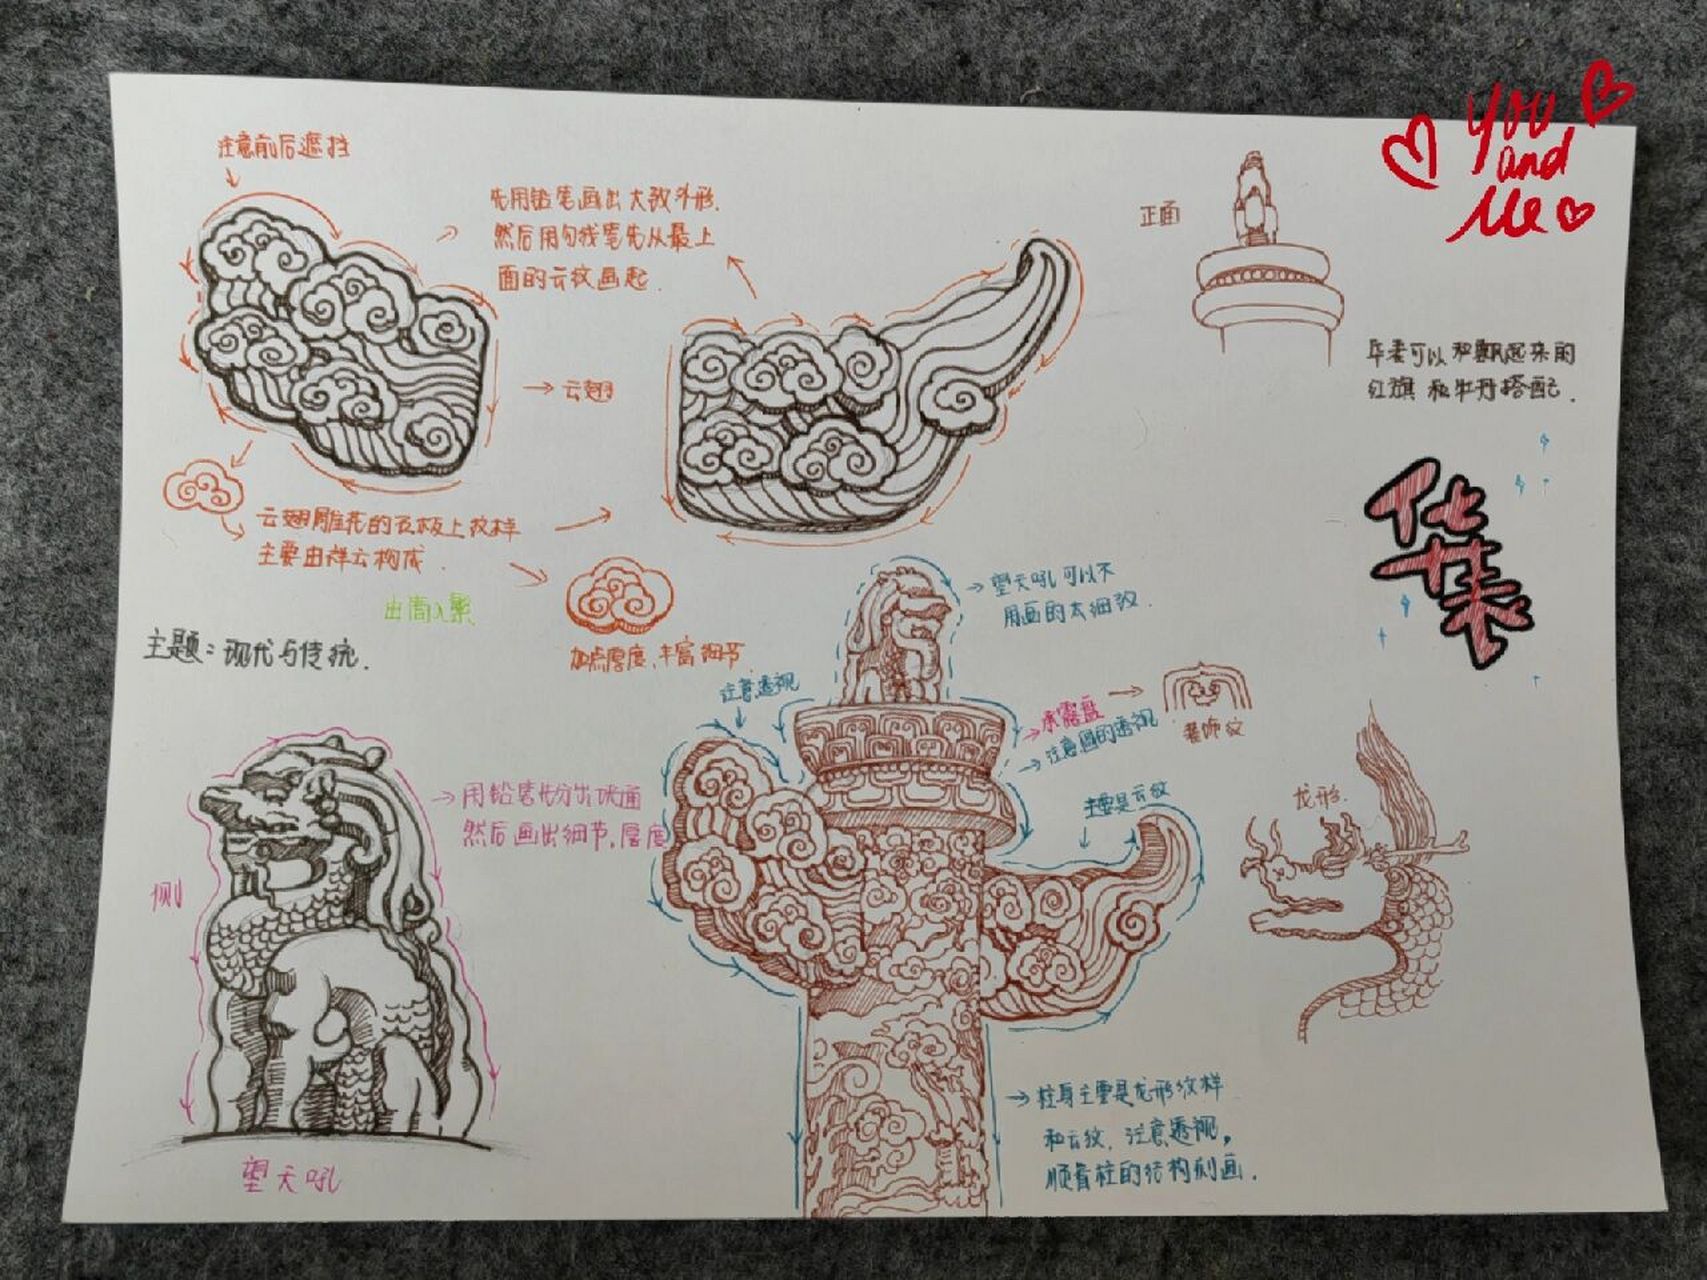 注意前后遮挡
先用铅笔画出大致外形.
然后用勾线笔先从最上
面的云纹画起.
→云翅
云翅雕花的石板上纹样
主要由祥云构成.
由简入繁
加点厚度、丰富细节.
主题：现代与传统.
You
and
Me
正面
华表可以和飘起来的
红旗和牡丹搭配.
华表
→望天吼可以不
用画的太细致.
注意透视
→承露盘→
→注意圆的透视
装饰纹
主要是云纹
龙形.
→用铅笔
然后画出细节.厚度
侧
望天吼
→柱身主要是龙形纹样
和云纹.注意透视,
顺着柱的结构刻画.